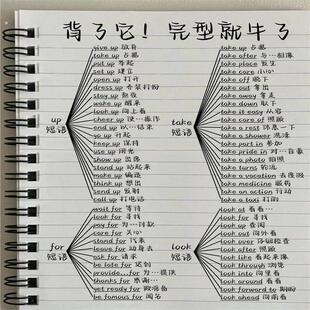 背了它！完型就牛了
up
短语
give up 放弃
take up 占据
put up 举起
set up 建立
open up 打开
dress up 乔装打扮
stay up 熬夜
wake up 醒来
look up 向上看
cheer up 使…振作
end up 以…结束
go up 升起
keep up 保持
use up 用光
show up 出席
stand up 站起来
make up 编造
think up 想出
send up 发射
call up 打电话
for
短语
wait for 等待
look for 寻找
pay for 为…付款
care for 关心
stand for 代表
leave for 动身去
ask for 请求
be late for 迟到
provide...for 为…提供
thanks for 感谢…
get ready for 做准备
be famous for 闻名
take
短语
take up 占据
take after 与…相像
take place 发生
take care 小心
take off 脱下
take out 拿出
take away 拿走
take down 取下
take it easy 从容
take care of 照顾
take a rest 休息一下
take a shower 洗澡
take part in 参加
take pride in 对…自豪
take a photo 拍照
take turns 轮流
take a vacation 去度假
take medicine 服药
take an action 行动
take a taxi 打的
look
短语
look at 看着…
look for 寻找
look up 查阅
look out 向外看
look over 仔细检查
look after 照顾
look like 看起来像
look through 浏览
look into 向里看
look around 看看
look forward to 期盼
look ahead 向前看